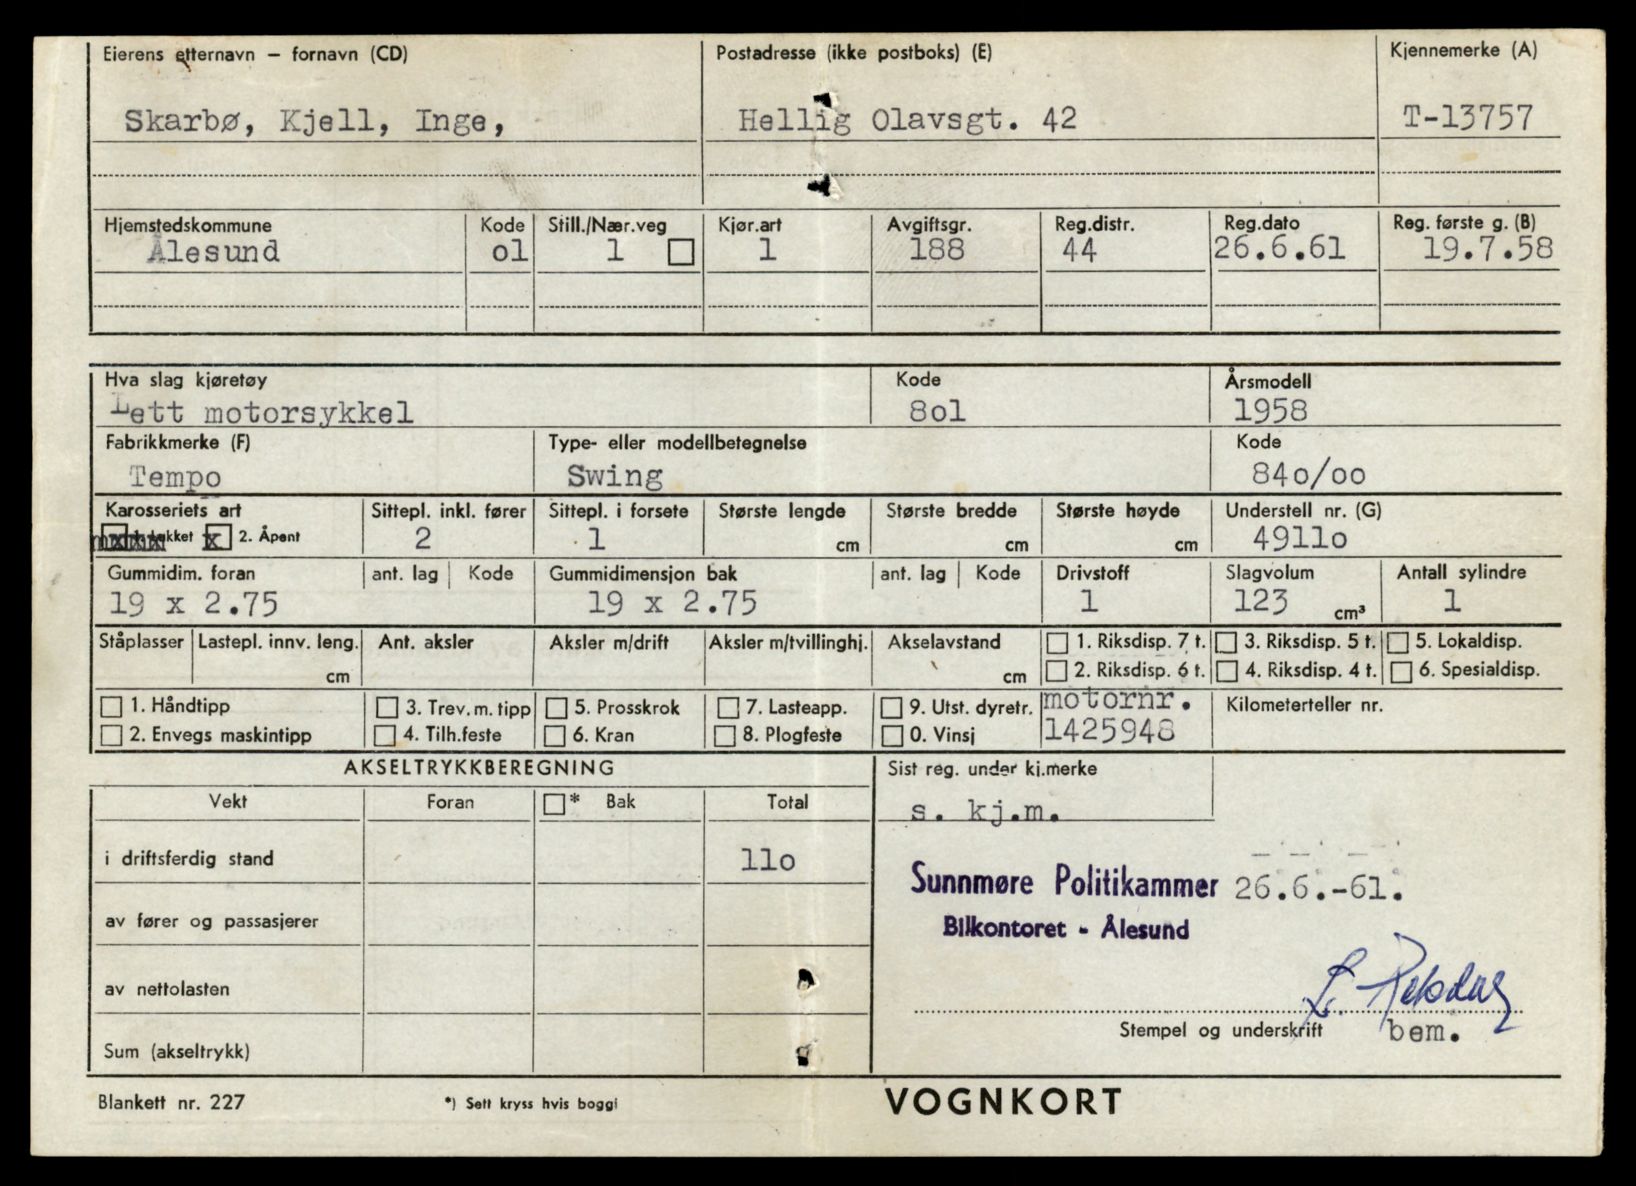 Eierens etternavn – fornavn (CD) Postadresse (ikke postboks) (E) Kjennemerke (A)
Skarbø, Kjell, Inge, Hellig Olavsgt. 42 T-13757
Hjemstedskommune Kode Still./Nær.veg Kjør.art Avgiftsgr. Reg.distr. Reg.dato Reg. første g. (B)
Ålesund ol 1 1 188 44 26.6.61 19.7.58
Hva slag kjøretøy Kode Årsmodell
Lett motorsykkel 8ol 1958
Fabrikkmerke (F) Type- eller modellbetegnelse Kode
Tempo Swing 84o/oo
Karosseriets art Sittepl. inkl. fører Sittepl. i forsete Største lengde Største bredde Største høyde Understell nr. (G)
x 2. Åpent 2 1 cm cm cm 4911o
Gummidim. foran ant. lag Kode Gummidimensjon bak ant. lag Kode Drivstoff Slagvolum Antall sylindre
19 x 2.75 19 x 2.75 1 123 cm³ 1
Ståplasser Lastepl. innv. leng. Ant. aksler Aksler m/drift Aksler m/tvillinghj. Akselavstand 1. Riksdisp. 7 t. 3. Riksdisp. 5 t. 5. Lokaldisp.
cm cm 2. Riksdisp. 6 t. 4. Riksdisp. 4 t. 6. Spesialdisp.
1. Håndtipp 3. Trev. m. tipp 5. Prosskrok 7. Lasteapp. 9. Utst. dyretr. motornr. Kilometerteller nr.
2. Envegs maskintipp 4. Tilh.feste 6. Kran 8. Plogfeste 0. Vinsj 1425948
AKSELTRYKKBEREGNING Sist reg. under kj.merke
Vekt Foran * Bak Total s. kj.m.
i driftsferdig stand 11o
Sunnmøre Politikammer 26.6.-61.
av fører og passasjerer Bilkontoret - Ålesund
av nettolasten
Stempel og underskrift bem.
Sum (akseltrykk)
Blankett nr. 227 *) Sett kryss hvis boggi VOGNKORT